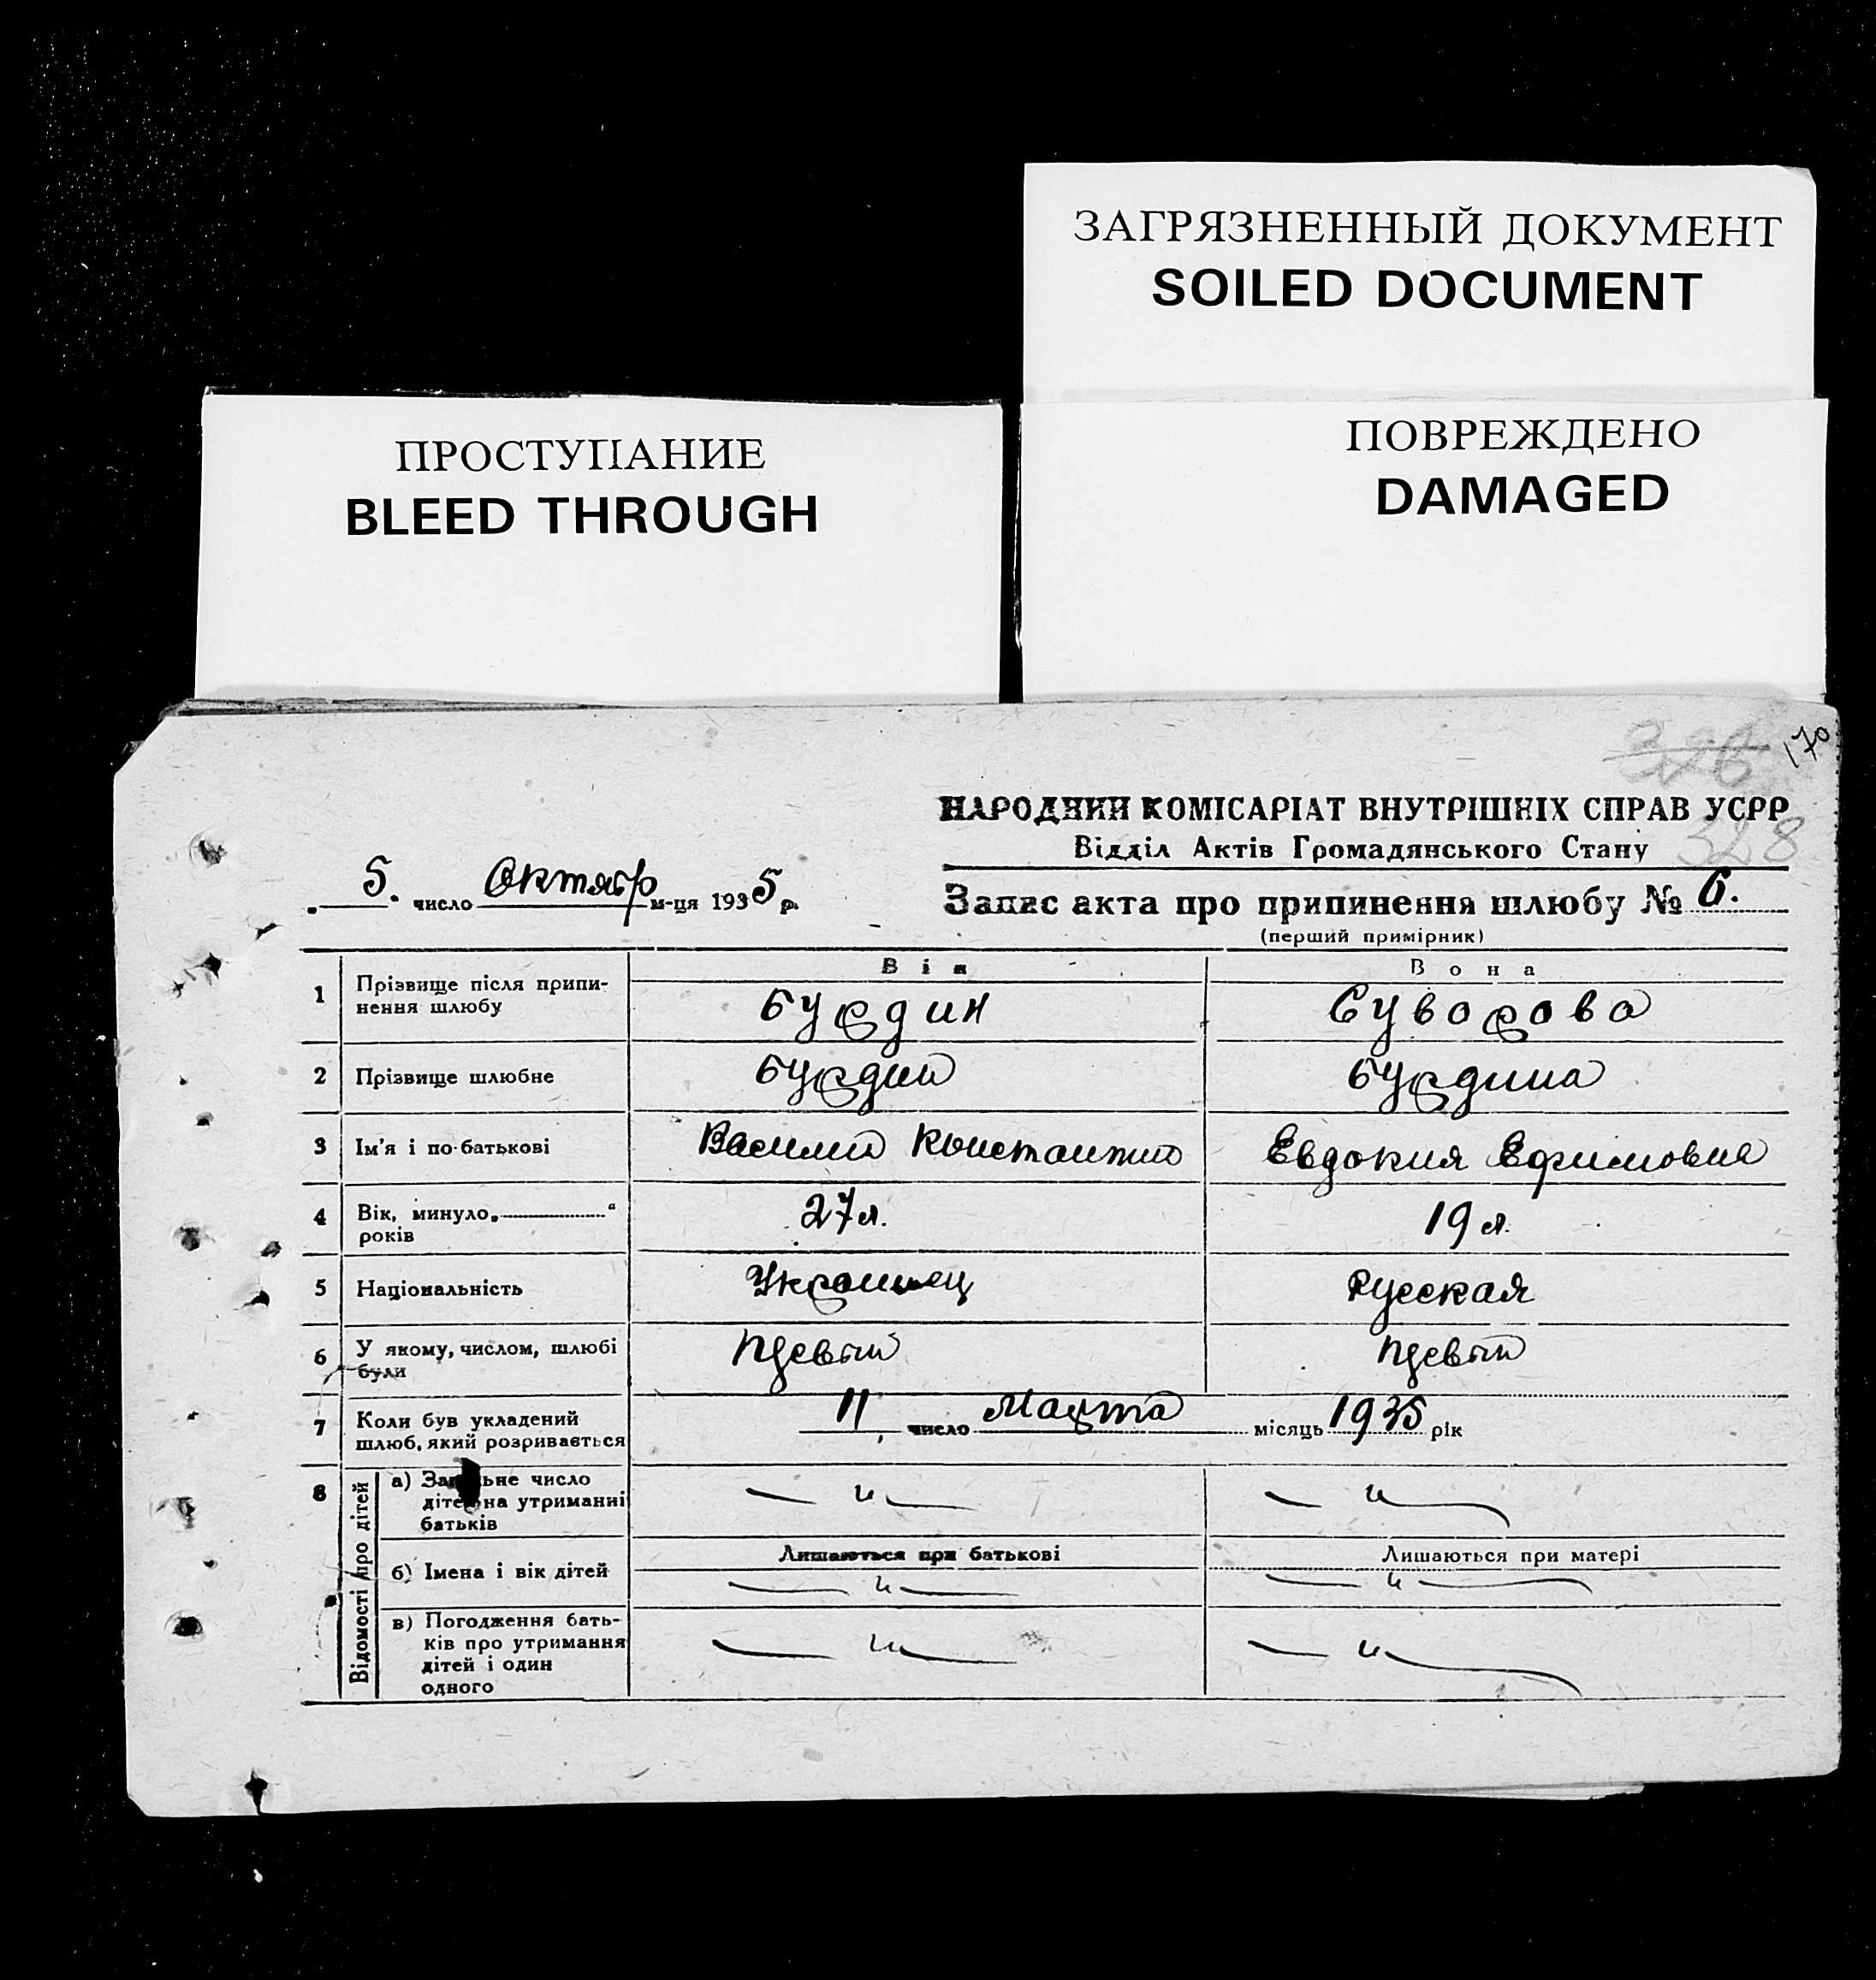 ЗАГРЯЗНЕННЫЙ ДОКУМЕНТ
SOILED DOCUMENT
ПРОСТУПАНИЕ
BLEED THROUGH
ПОВРЕЖДЕНО
DAMAGED
326 170
НАРОДНИЙ КОМІСАРІАТ ВНУТРІШНІХ СПРАВ УСРР
328
Відділ Актів Громадянського Стану
5. число Октябр м-ця 1935 р.
Запис акта про припинення шлюбу № 6.
(перший примірник)
Він Вона
1 Прізвище після припи-
нення шлюбу Бурдин Суворова
2 Прізвище шлюбне Бурдин Бурдина
3 Ім'я і по-батькові Василий Константин Евдокия Ефимовна
4 Вік, минуло „ “
років 27 л. 19 л.
5 Національність Украинец Русская
6 У якому, числом, шлюбі
були Первый Первый
7 Коли був укладений
шлюб, який розривається 11 число Марта місяць 1935 рік
8 Відомості про дітей
а) Загальне число
дітей на утриманні
батьків — " — — " —
Лишаються при батькові Лишаються при матері
б) Імена і вік дітей — " — — " —
в) Погодження бать-
ків про утримання
дітей і один
одного — " — — " —